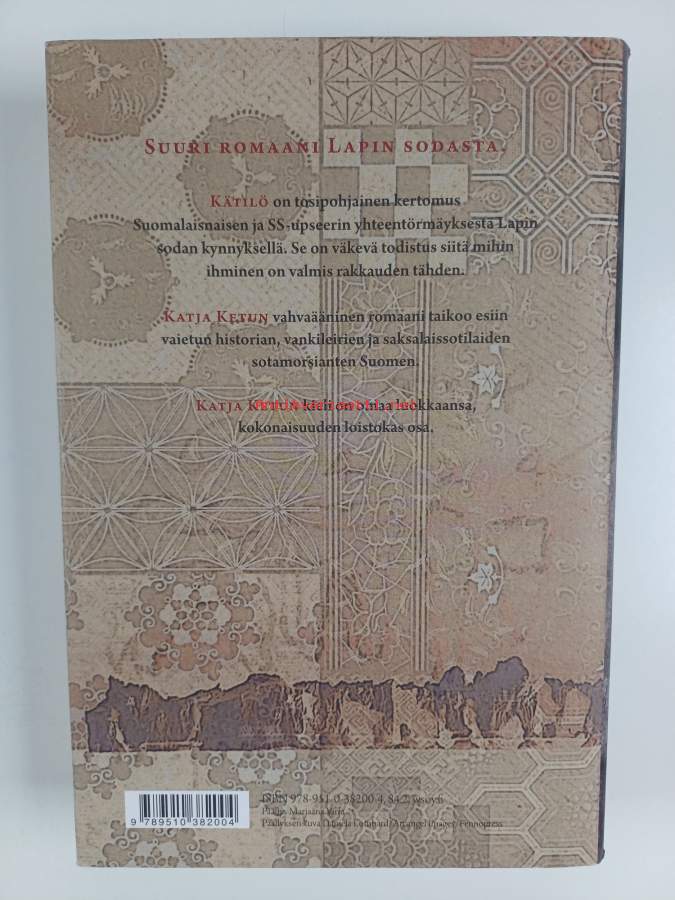 SUURI ROMAANI LAPIN SODASTA.
KÄTILÖ on tosipohjainen kertomus
Suomalaisnaisen ja SS-upseerin yhteentörmäyksestä Lapin
sodan kynnyksellä. Se on väkevä todistus siitä mihin
ihminen on valmis rakkauden tähden.
KATJA KETUN vahvaääninen romaani taikoo esiin
vaietun historian, vankileirien ja saksalaissotilaiden
sotamorsianten Suomen.
KATJA KETUN kieli on omaa luokkaansa,
kokonaisuuden loistokas osa.
ISBN 978-951-0-38200-4, 84.2, wsoy.fi
Päällys Marjaana
Päällyksen kuva
9 789510 382004